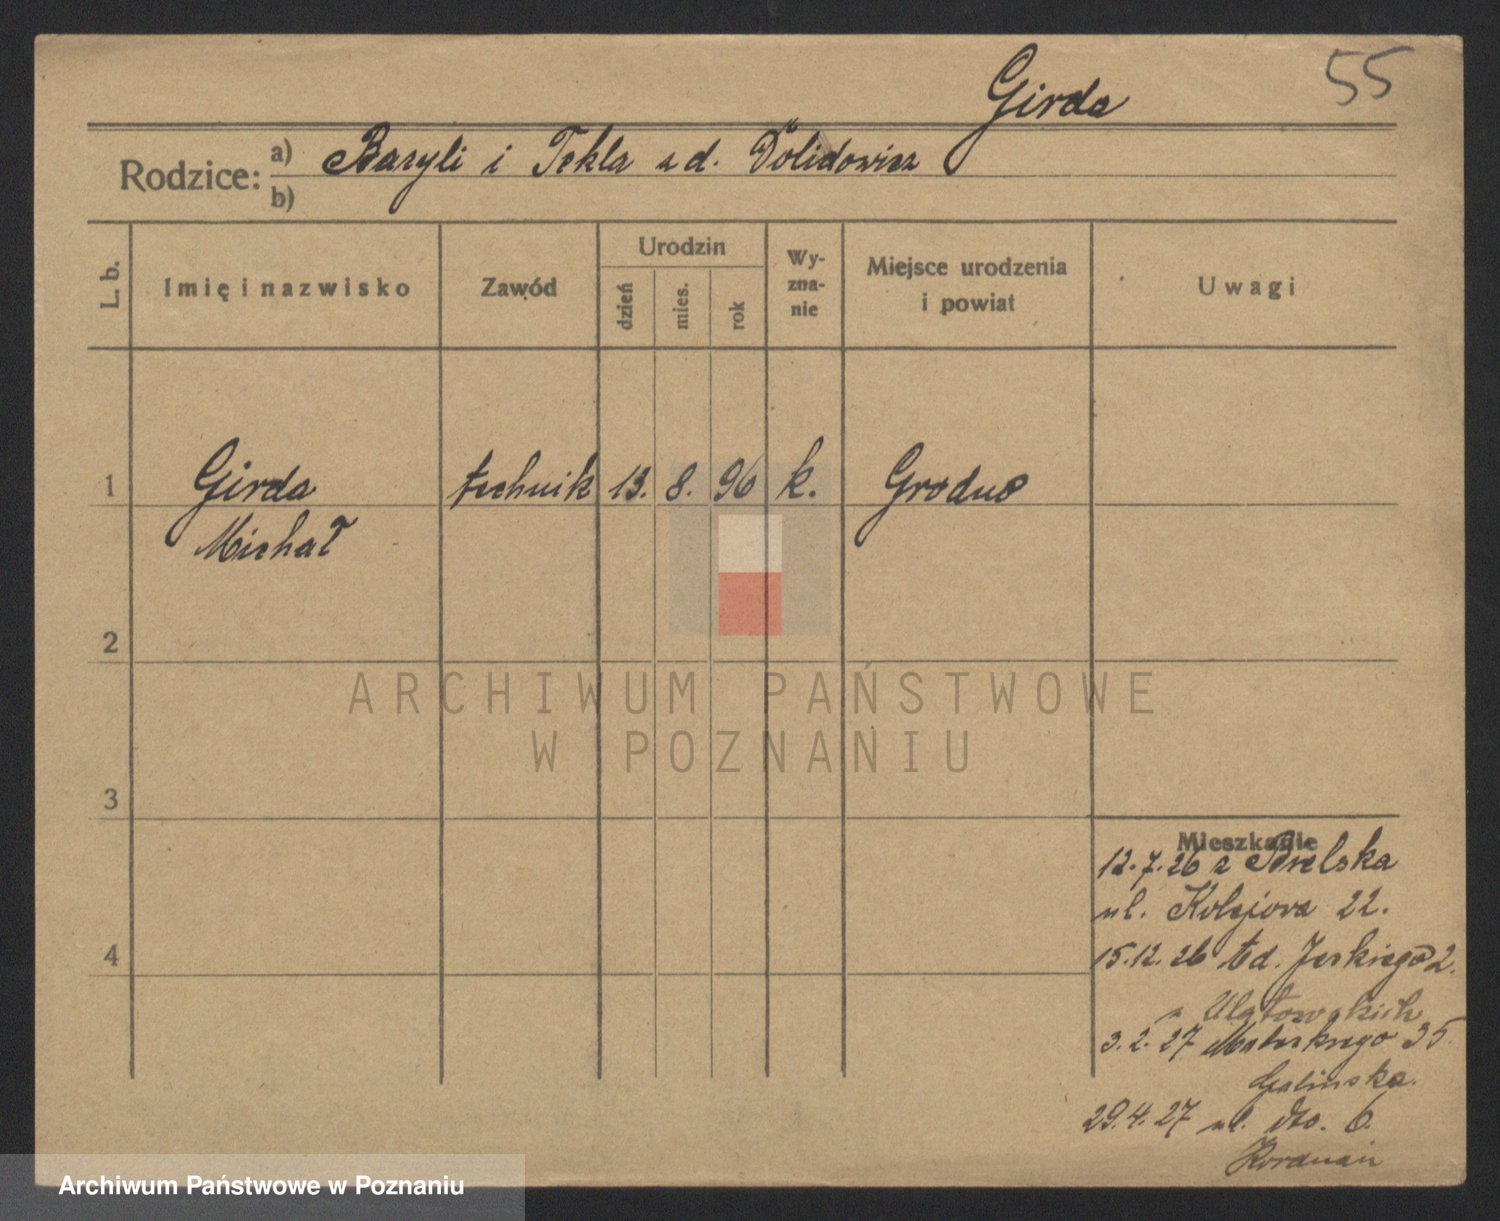 Girda
55
Rodzice: a) Bazyli i Tekla z d. Dolidowicz
b)
L. b.
Imię i nazwisko
Zawód
Urodzin
dzień
mies.
rok
Wy-
zna-
nie
Miejsce urodzenia
i powiat
Uwagi
1 Girda technik 13. 8. 96 k. Grodno
Michał
2
3
4
Mieszkanie
12.7.26 z
ul. Kolejowa 22.
15.12.26 td. 2.
3.2.27 35
Galińska.
29.4.27 ul. dto. 6.
ARCHIWUM PAŃSTWOWE
W POZNANIU
Archiwum Państwowe w Poznaniu